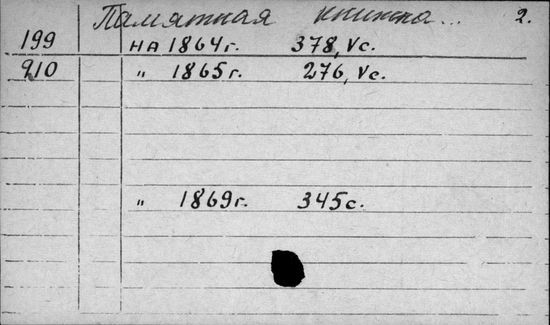 Памятная книжка... 2.
199 на 1864 г. 378, Vс.
210 " 1865 г. 276, Vс.
" 1869 г. 345 с.